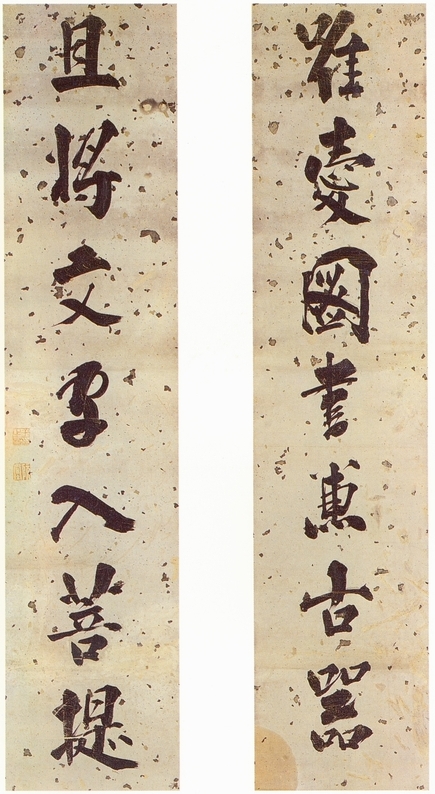 雖愛圖書兼古器
且將文字入菩提